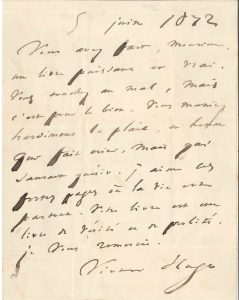 5 juin 1872
Vous avez fait, Monsieur,
un livre puissant et vrai.
Vous touchez au mal, mais
c'est pour le bien. Vous maniez
hardiment la plaie, en homme
qui fait crier, mais qui
saurait guérir. J'aime ces
fortes pages où la vie est
partout. Votre livre est un
livre de vérité et de probité.
je vous remercie.
Victor Hugo